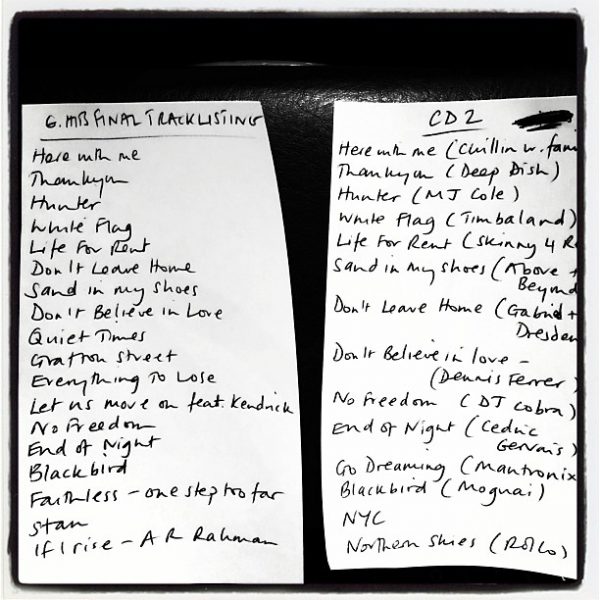 G.HITS FINAL TRACKLISTING
Here with me
Thankyou
Hunter
White Flag
Life For Rent
Don't Leave Home
Sand in my shoes
Don't Believe in Love
Quiet Times
Grafton Street
Everything To Lose
Let us move on feat. Kendrick
No Freedom
End of Night
Blackbird
Faithless - one step too far
Stan
If I rise - A R Rahman
CD 2
Here with me (Chillin w. fam
Thankyou (Deep Dish)
Hunter (MJ Cole)
White Flag (Timbaland)
Life For Rent (Skinny 4 R
Sand in my shoes (Above +
Beyond
Don't Leave Home (Gabriel +
Dresden
Don't Believe in love -
(Dennis Ferrer)
No Freedom (DJ Cobra)
End of Night (Cedric
Gervais)
Go Dreaming (Mantronix
Blackbird (Mogwai)
NYC
Northern Skies (Rollo)